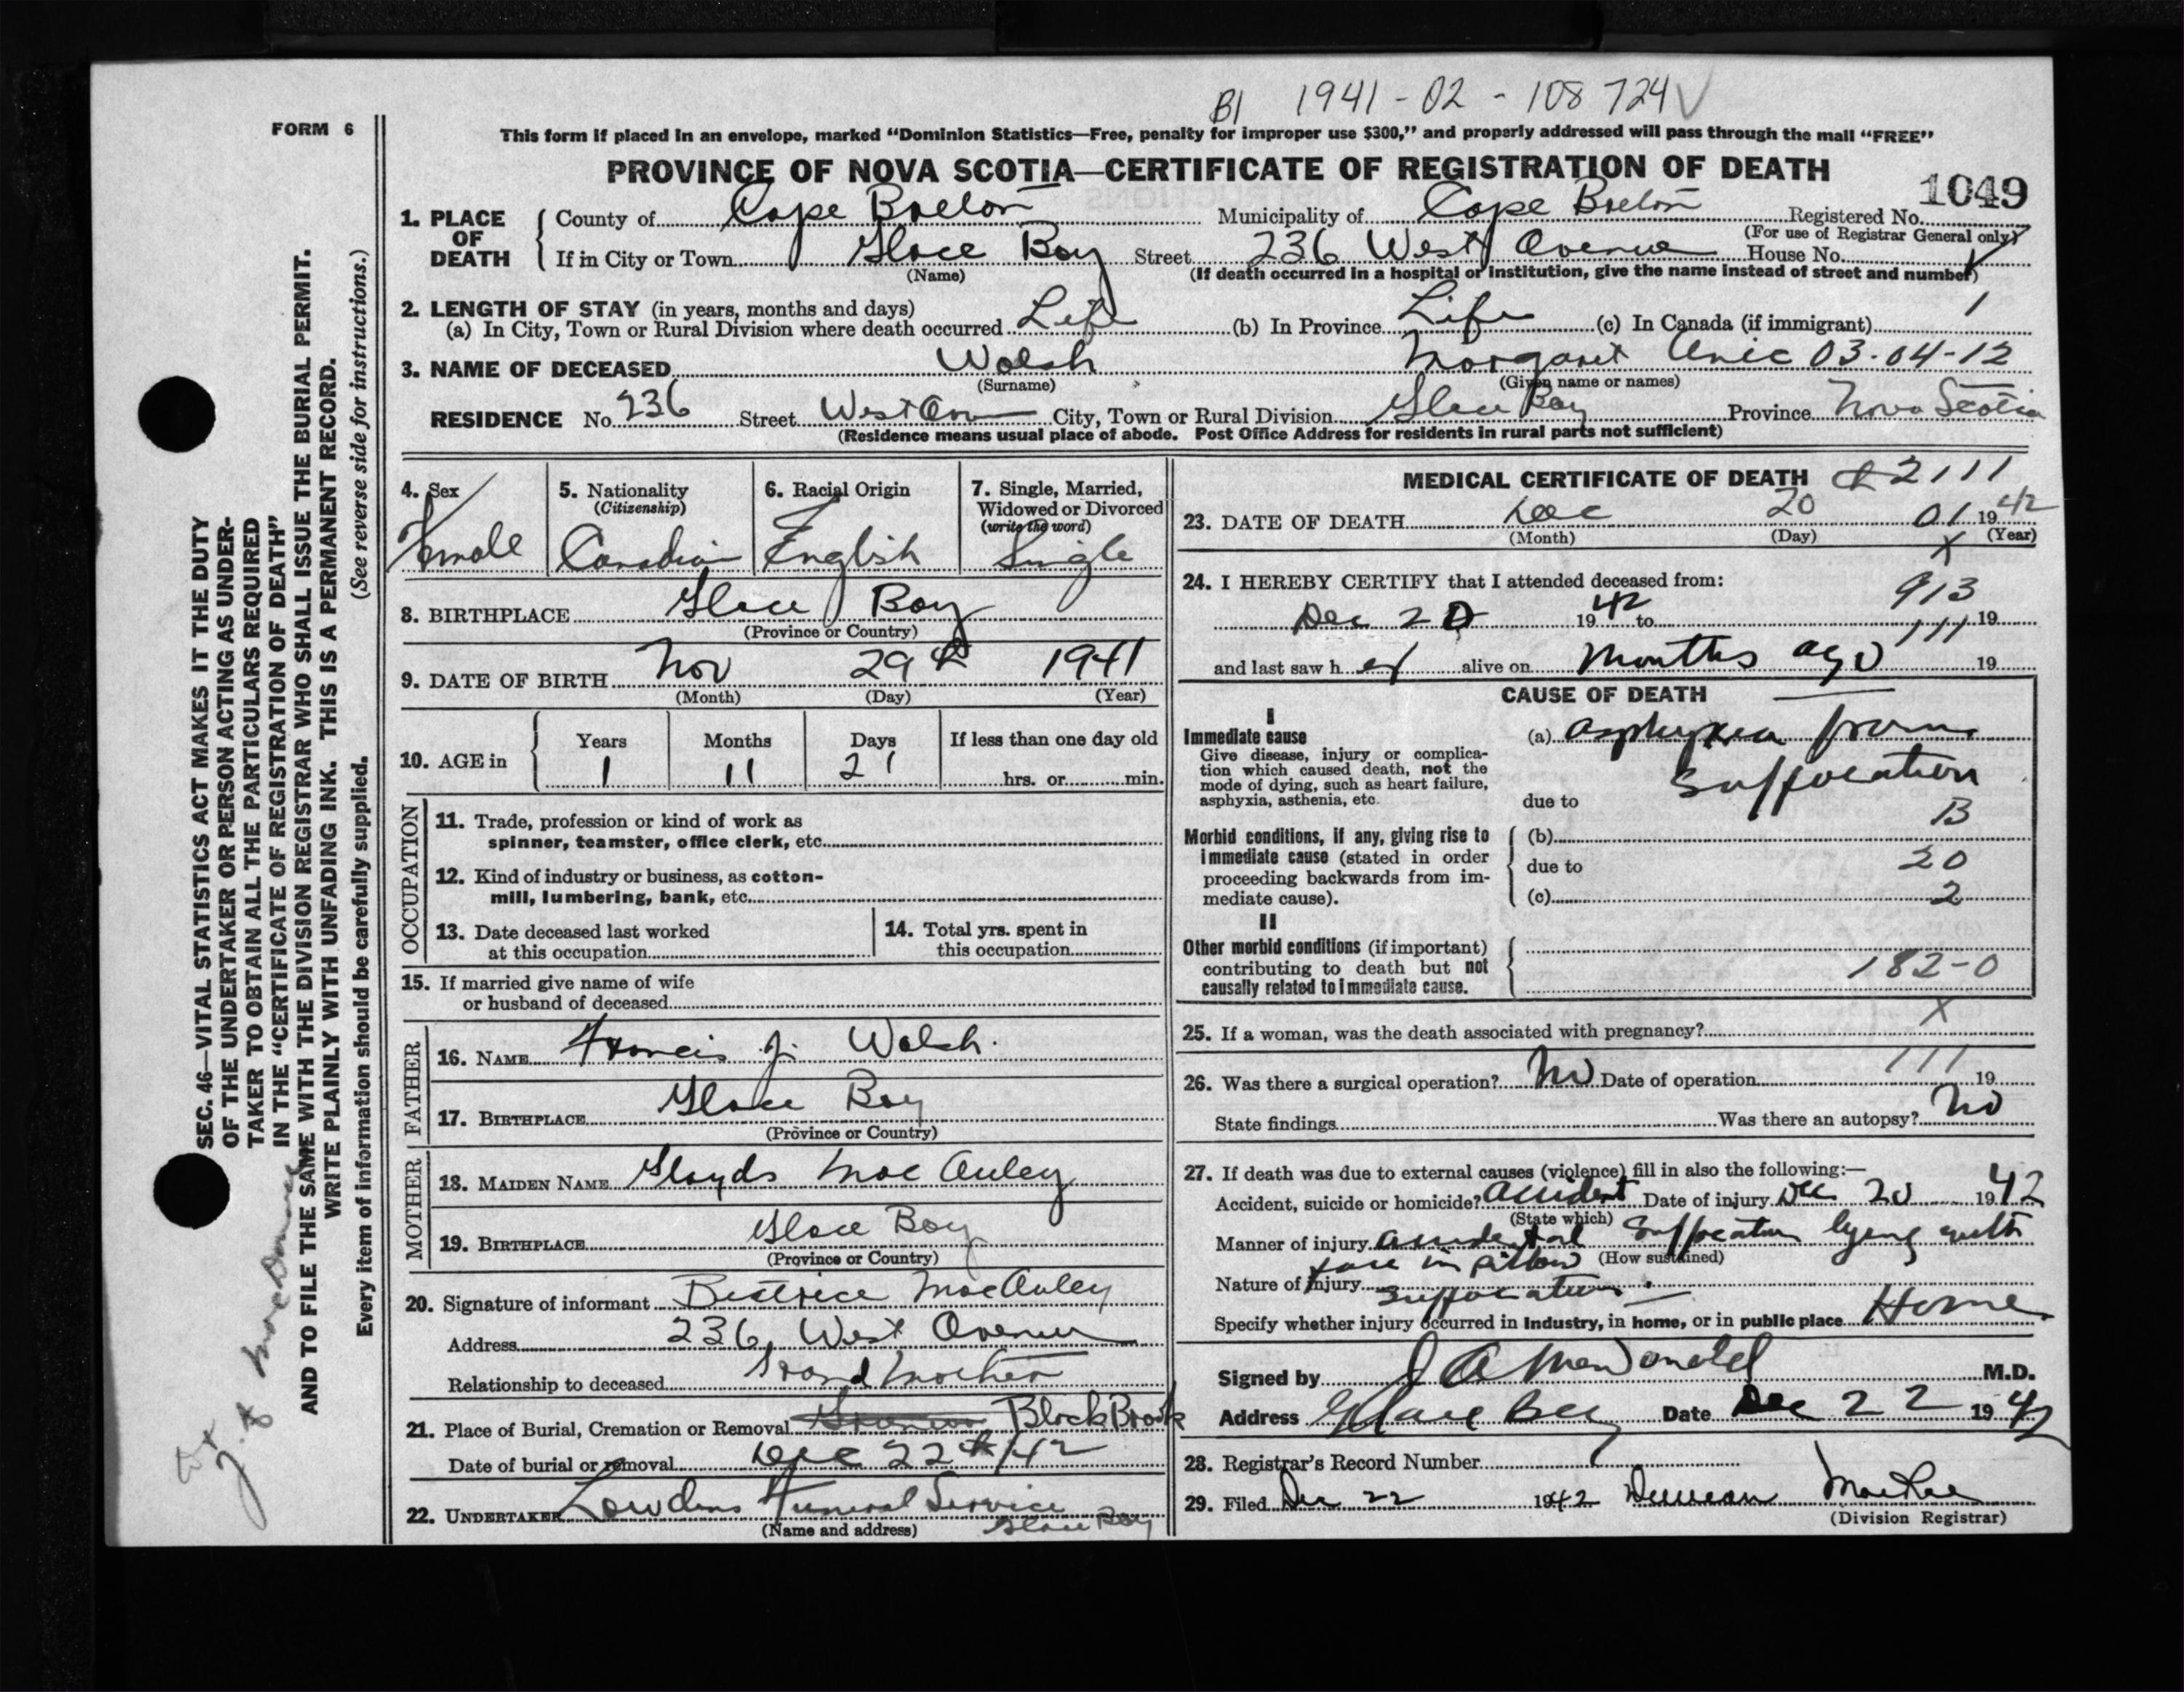 B1 1941 - 02 - 108 724
FORM 6
This form if placed in an envelope, marked “Dominion Statistics—Free, penalty for improper use $300,” and properly addressed will pass through the mail “FREE”
PROVINCE OF NOVA SCOTIA—CERTIFICATE OF REGISTRATION OF DEATH
1049
1. PLACE OF DEATH { County of Cape Breton Municipality of Cape Breton Registered No.
(For use of Registrar General only)
If in City or Town Glace Bay Street 236 West Avenue House No.
(Name) (If death occurred in a hospital or institution, give the name instead of street and number)
2. LENGTH OF STAY (in years, months and days)
(a) In City, Town or Rural Division where death occurred Life (b) In Province Life (c) In Canada (if immigrant)
3. NAME OF DECEASED Walsh Margaret 03-04-12
(Surname) (Given name or names)
RESIDENCE No. 236 Street West Ave City, Town or Rural Division Glace Bay Province Nova Scotia
(Residence means usual place of abode. Post Office Address for residents in rural parts not sufficient)
4. Sex
Female
5. Nationality
(Citizenship)
Canadian
6. Racial Origin
English
7. Single, Married,
Widowed or Divorced
(write the word)
Single
8. BIRTHPLACE Glace Bay
(Province or Country)
9. DATE OF BIRTH Nov 29th 1941
(Month) (Day) (Year)
10. AGE in { Years Months Days If less than one day old
1 11 21 hrs. or min.
OCCUPATION
11. Trade, profession or kind of work as
spinner, teamster, office clerk, etc.
12. Kind of industry or business, as cotton-
mill, lumbering, bank, etc.
13. Date deceased last worked
at this occupation
14. Total yrs. spent in
this occupation
15. If married give name of wife
or husband of deceased
FATHER
16. NAME Francis J. Walsh.
17. BIRTHPLACE Glace Bay
(Province or Country)
MOTHER
18. MAIDEN NAME Glayds MacAuley
19. BIRTHPLACE Glace Bay
(Province or Country)
20. Signature of informant Beatrice MacAuley
Address 236 West Avenue
Relationship to deceased Grandmother
21. Place of Burial, Cremation or Removal Black Brook
Date of burial or removal Dec 22nd/42
22. UNDERTAKER Lowdens Funeral Service
(Name and address) Glace Bay
MEDICAL CERTIFICATE OF DEATH 2111
23. DATE OF DEATH Dec 20 01 1942
(Month) (Day) (Year)
X
24. I HEREBY CERTIFY that I attended deceased from:
913
Dec 20 1942 to 19
111
and last saw her alive on Months ago 19
CAUSE OF DEATH
I
Immediate cause
Give disease, injury or complica-
tion which caused death, not the
mode of dying, such as heart failure,
asphyxia, asthenia, etc.
(a) Asphyxia from
suffocation
due to
B
Morbid conditions, if any, giving rise to
immediate cause (stated in order
proceeding backwards from im-
mediate cause).
(b)
due to 20
(c) 2
II
Other morbid conditions (if important)
contributing to death but not
causally related to immediate cause.
182-0
X
25. If a woman, was the death associated with pregnancy?
111
26. Was there a surgical operation? No Date of operation 19
State findings Was there an autopsy? No
27. If death was due to external causes (violence) fill in also the following:—
Accident, suicide or homicide? Accident Date of injury Dec 20 1942
(State which)
Manner of injury Accidental suffocation lying with
face in pillow (How sustained)
Nature of injury suffocation.
Specify whether injury occurred in industry, in home, or in public place Home
Signed by J A MacDonald M.D.
Address Glace Bay Date Dec 22 1942
28. Registrar's Record Number
29. Filed Dec 22 1942 Duncan MacRae
(Division Registrar)
SEC. 46—VITAL STATISTICS ACT MAKES IT THE DUTY
OF THE UNDERTAKER OR PERSON ACTING AS UNDER-
TAKER TO OBTAIN ALL THE PARTICULARS REQUIRED
IN THE “CERTIFICATE OF REGISTRATION OF DEATH”
AND TO FILE THE SAME WITH THE DIVISION REGISTRAR WHO SHALL ISSUE THE BURIAL PERMIT.
WRITE PLAINLY WITH UNFADING INK. THIS IS A PERMANENT RECORD.
Every item of information should be carefully supplied. (See reverse side for instructions.)